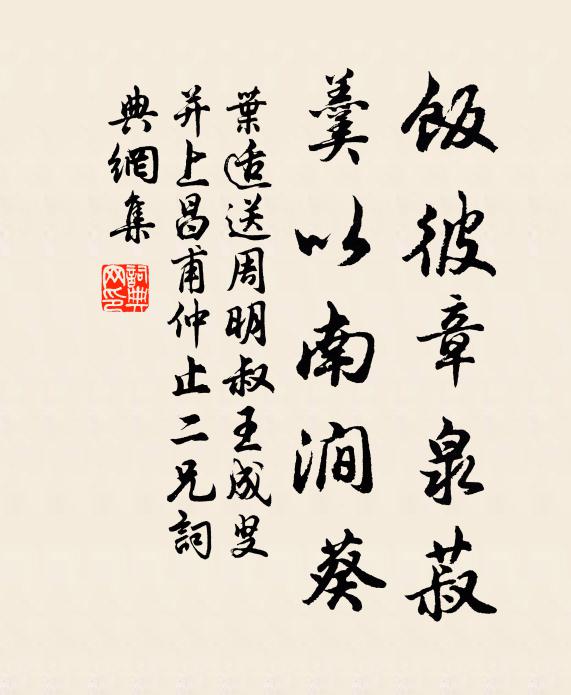 飯彼章泉菽
羹以南澗葵
葉适送周明叔王成叟
并上昌甫仲止二兄詞
典網集
詞典网印